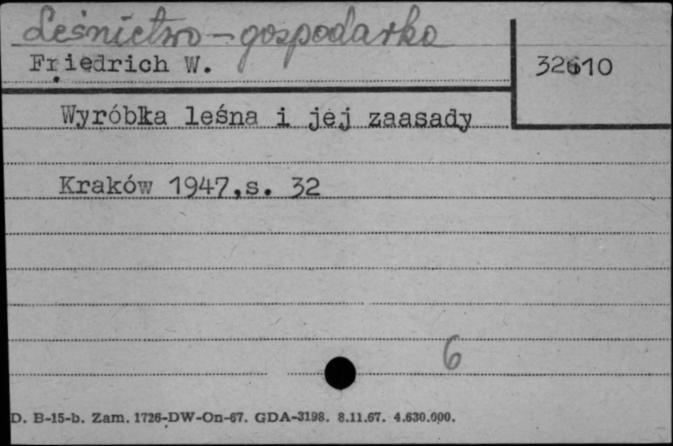 Leśnictwo - gospodarka
Friedrich W.
32610
Wyróbka leśna i jej zaasady
Kraków 1947,s. 32
6
D. B-15-b. Zam. 1726-DW-On-67. GDA-3198. 8.11.67. 4.630.000.